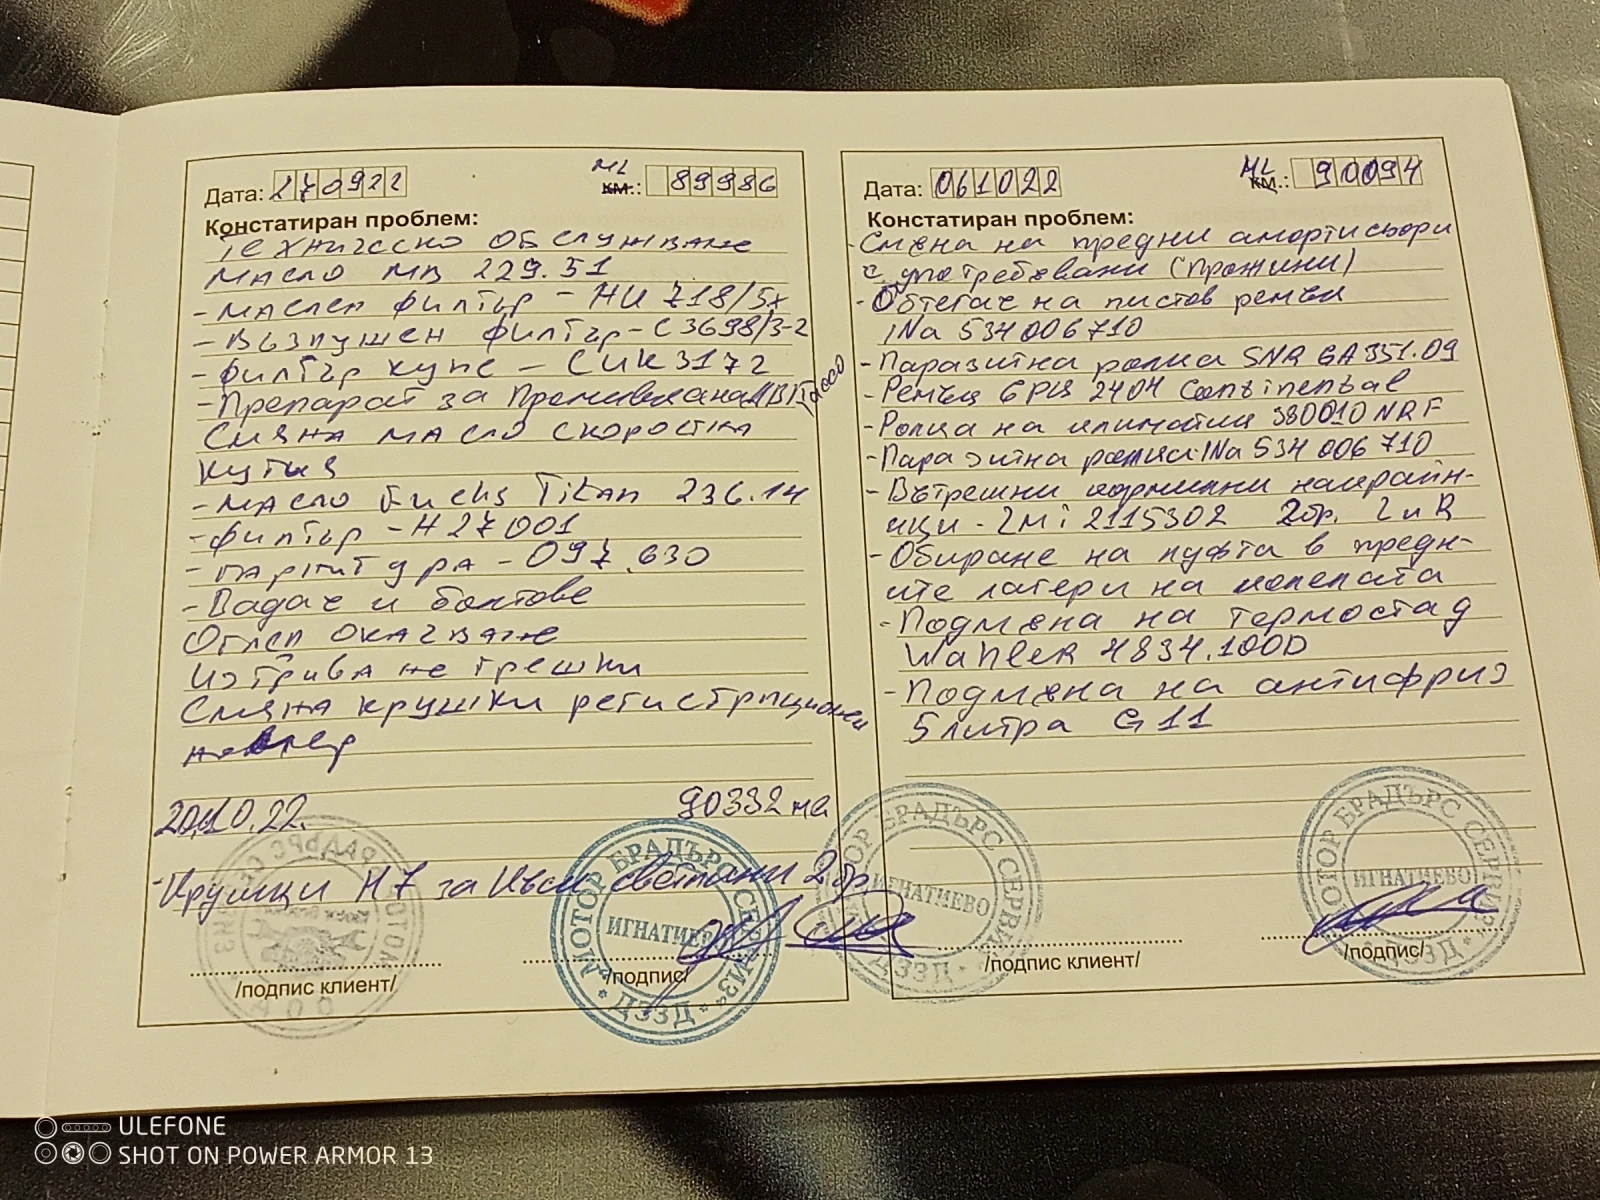 Дата: 270922
ML
км.: 89986
Констатиран проблем:
Техническо обслужване
Масло МВ 229.51
- Маслен филтър - HU 718/5x
- Въздушен филтър - C 3698/3-2
- филтър купе - CUK 3172
- Препарат за Промиване на
Смяна масло скоростна
кутия
- Масло Fuchs Titan 236.14
- филтър - H 27001
- гарнитура - 097.630
- Вадач и болтове
Оглед окачване
Изтриване грешки
Смяна крушки регистрационен
номер
20.10.22. 90332 мл
- Крушки H7 за къси светлини 2бр.
/подпис клиент/
/подпис/
МОТОР БРАДЪРС СЕРВИЗ
ИГНАТИЕВО
ДЗЗД
Дата: 061022
ML
км.: 90094
Констатиран проблем:
- Смяна на предни амортисьори
с употребявани (Пружини)
- Обтегач на пистов ремък
INA 534006710
- Паразитна ролка SNR GA351.09
- Ремък 6PK 2404 Continental
- Ролка на климатик 380010 NRF
- Паразитна ролка INA 534 006 710
- Вътрешни кормилни накрайн-
ици - LMi 2115302 2бр. L и R
- Обиране на луфта в предн-
ите лагери на колелата
- Подмяна на термостат
Wahler 4834.100D
- Подмяна на антифриз
5 литра G11
/подпис клиент/
/подпис/
МОТОР БРАДЪРС СЕРВИЗ
ИГНАТИЕВО
ДЗЗД
ULEFONE
SHOT ON POWER ARMOR 13